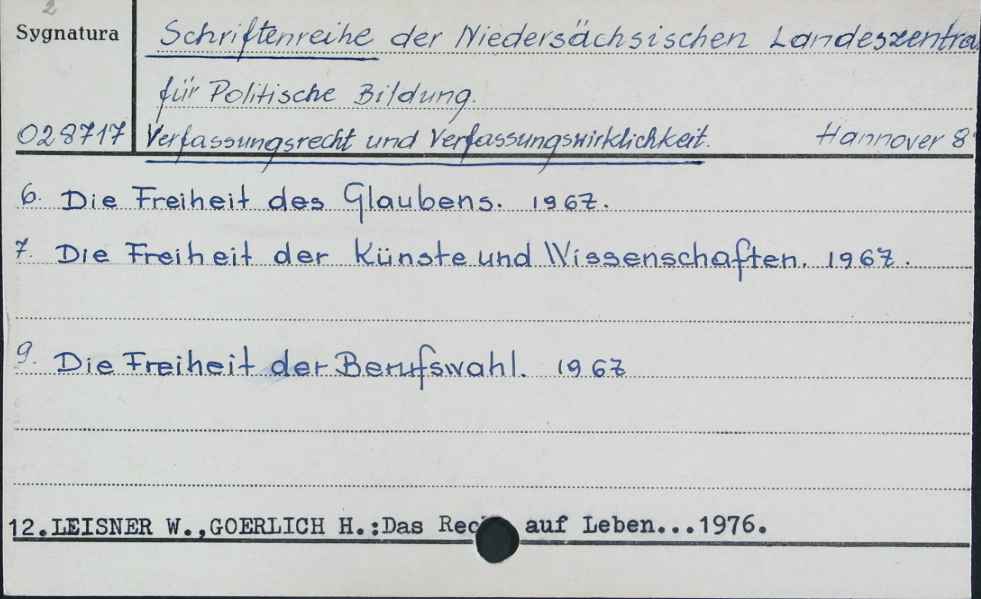 2
Sygnatura
Schriftenreihe der Niedersächsischen
für Politische Bildung.
028717 Verfassungsrecht und Verfassungswirklichkeit. Hannover 8°
6. Die Freiheit des Glaubens. 1967.
7. Die Freiheit der Künste und Wissenschaften. 1967.
9. Die Freiheit der Berufswahl. 1967
12.LEISNER W.,GOERLICH H.:Das auf Leben...1976.